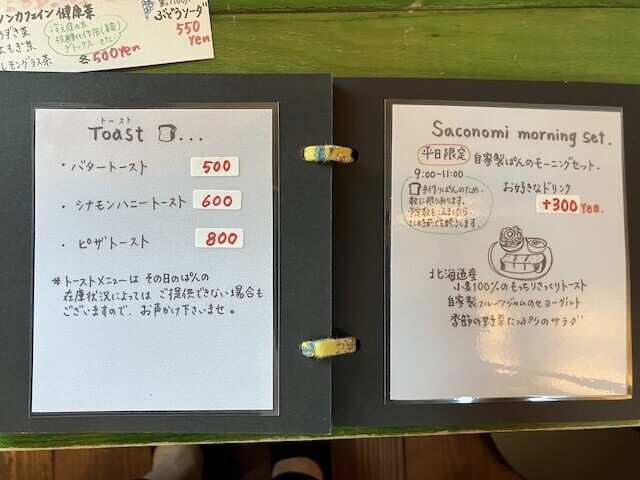 ンカフェイン 健康茶
ぶどうソーダ
550
yen
冷え症の方、
デトックス etc.
レモングラス茶
各500yen
トースト
Toast ...
・バタートースト 500
・シナモンハニートースト 600
・ピザトースト 800
* トーストメニューは その日のぱんの
在庫状況によっては ご提供できない場合も
ございますので、お声かけ下さいませ。
Saconomi morning set.
平日限定 自家製ぱんのモーニングセット.
9:00-11:00
手作りぱんのため、
数に限りあります。
予定数をこえましたら、
11時前でも終了します。
お好きなドリンク
+300 yen.
北海道産
小麦100%のもっちりさっくりトースト
自家製フルーツジャムのせヨーグルト
季節の野菜たっぷりのサラダ